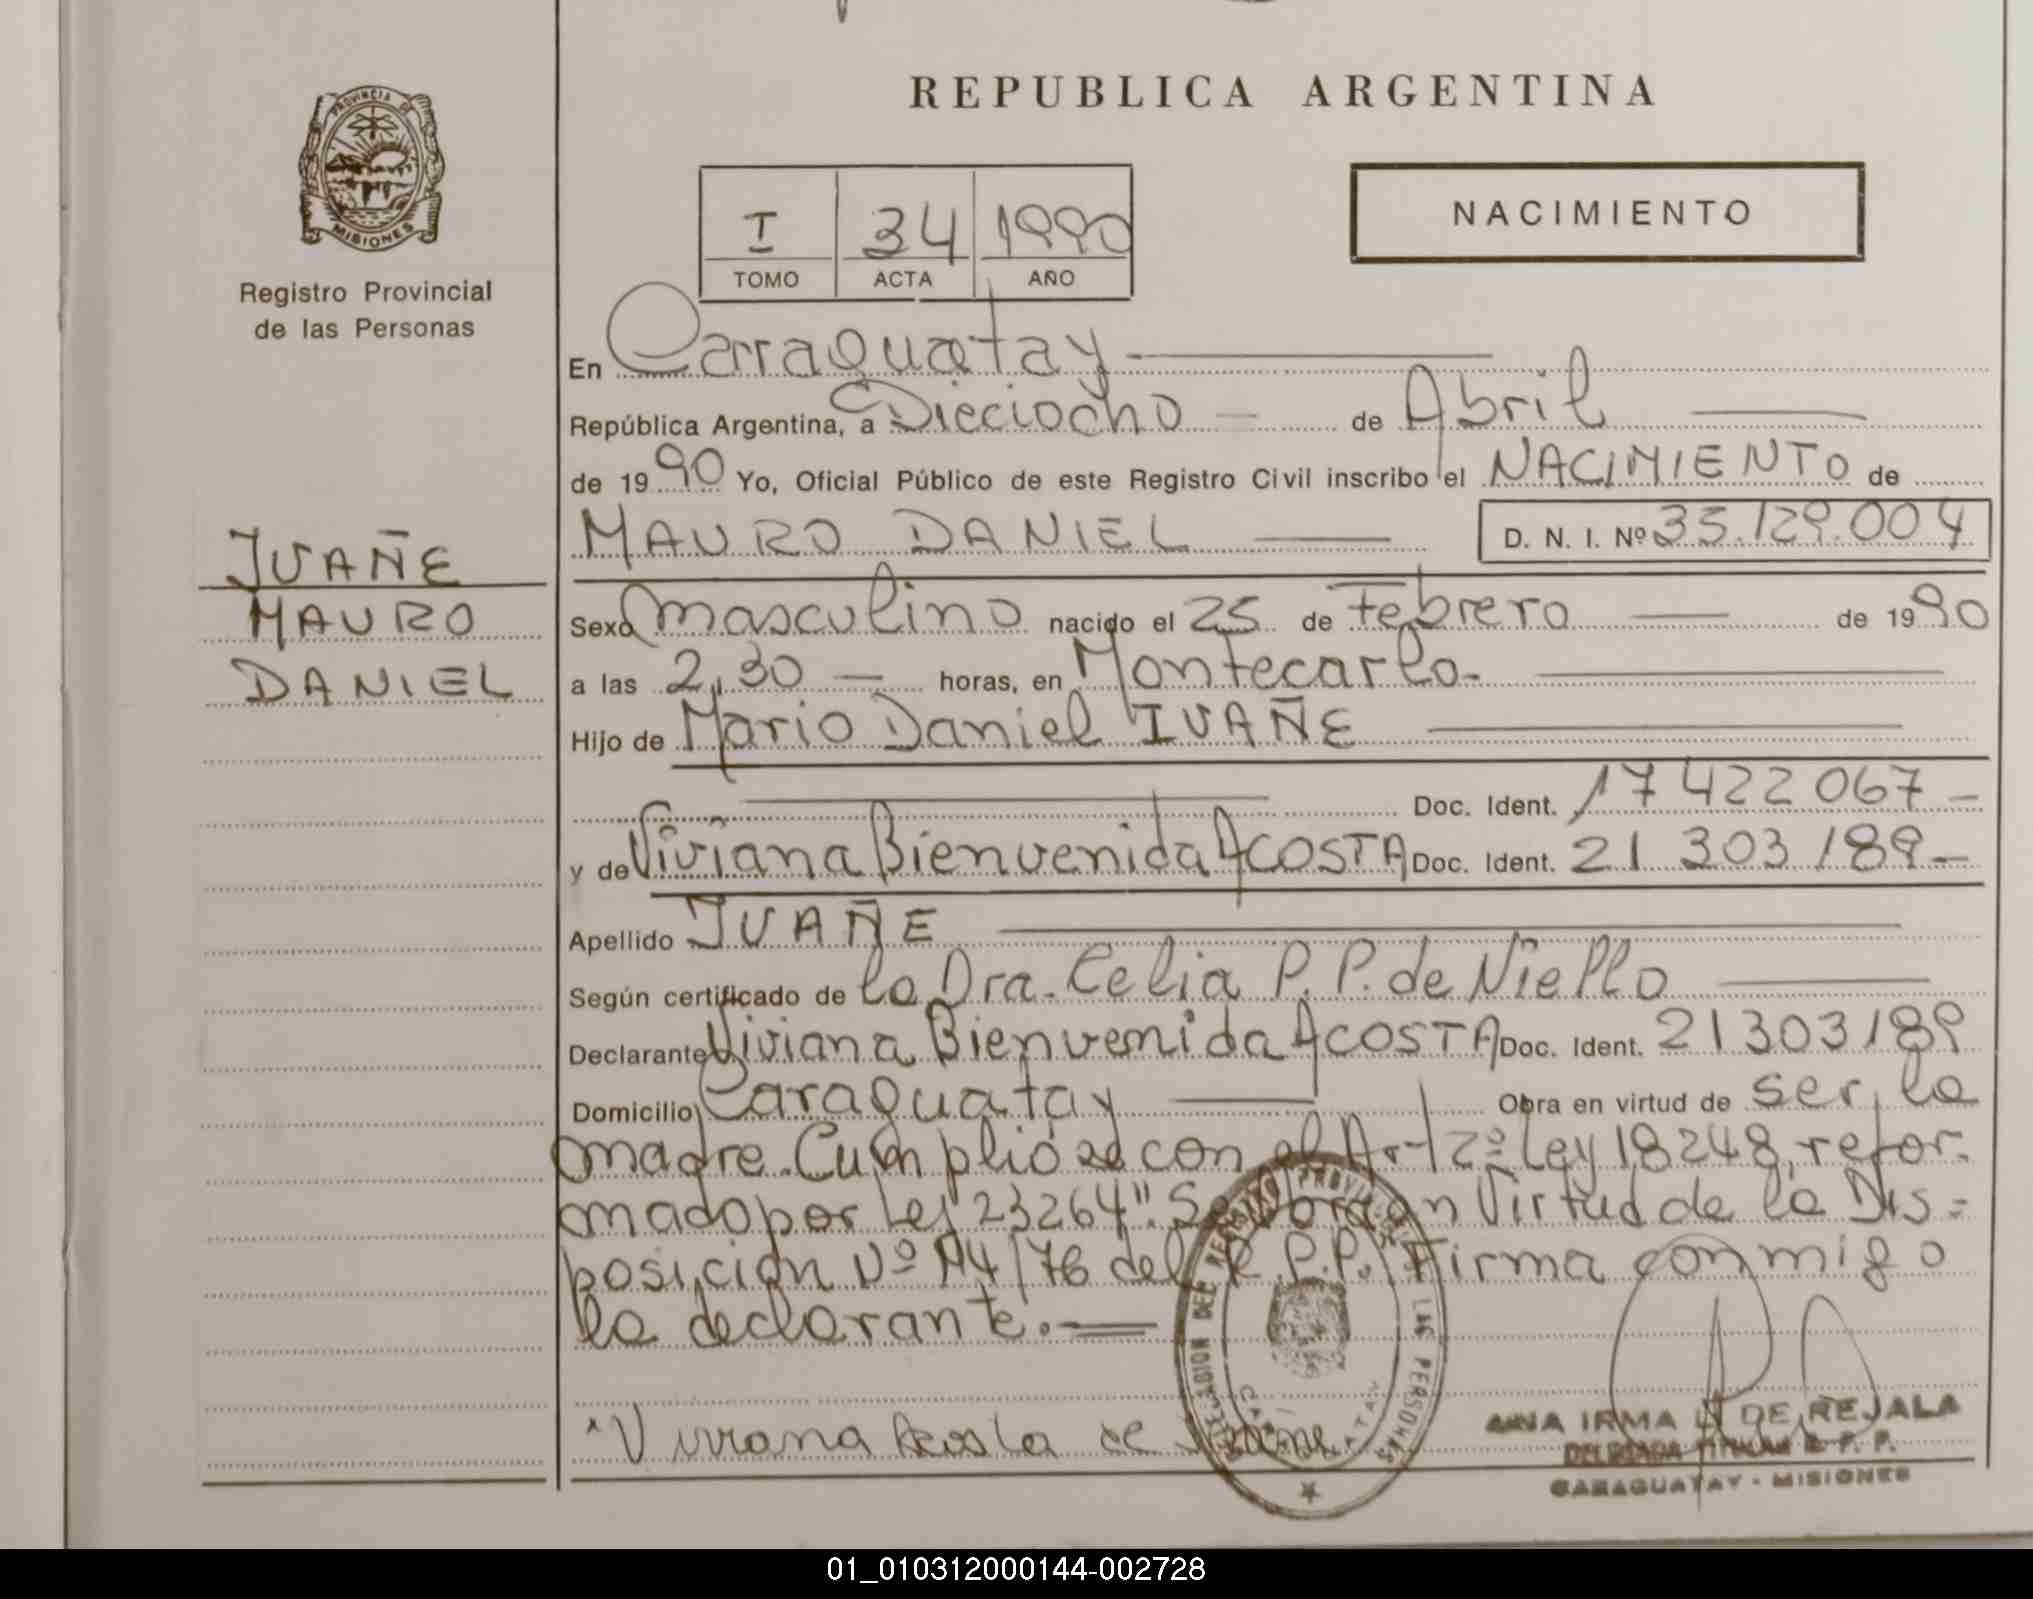 REPUBLICA ARGENTINA
PROVINCIA DE
MISIONES
Registro Provincial
de las Personas
NACIMIENTO
I 34 1990
TOMO ACTA AÑO
En Carraguatay
República Argentina, a Dieciocho de Abril
de 1990 Yo, Oficial Público de este Registro Civil inscribo el NACIMIENTO de
MAURO DANIEL D. N. I. Nº 35.129.004
IVAÑE
MAURO
DANIEL
Sexo masculino nacido el 25 de Febrero de 1990
a las 2,30 horas, en Montecarlo.
Hijo de Mario Daniel IVAÑE
Doc. Ident. 17 422 067
y de Viviana Bienvenida ACOSTA Doc. Ident. 21 303 189
Apellido IVAÑE
Según certificado de la Dra. Celia P. P. de Niello
Declarante Viviana Bienvenida ACOSTA Doc. Ident. 21303189
Domicilio Caraguatay Obra en virtud de ser la
madre. Cumplióse con el Art 2º Ley 18248, refor-
mado por Ley 23264". Se en Virtud de la Dis=
posición Nº 114/76 del R.P.P. Firma conmigo
la declarante.
Viviana Acosta de
REGISTRO PROVINCIAL LAS PERSONAS
ANA IRMA DE REJALA
DELEGADA TITULAR R. P. P.
CARAGUATAY - MISIONES
01_010312000144-002728